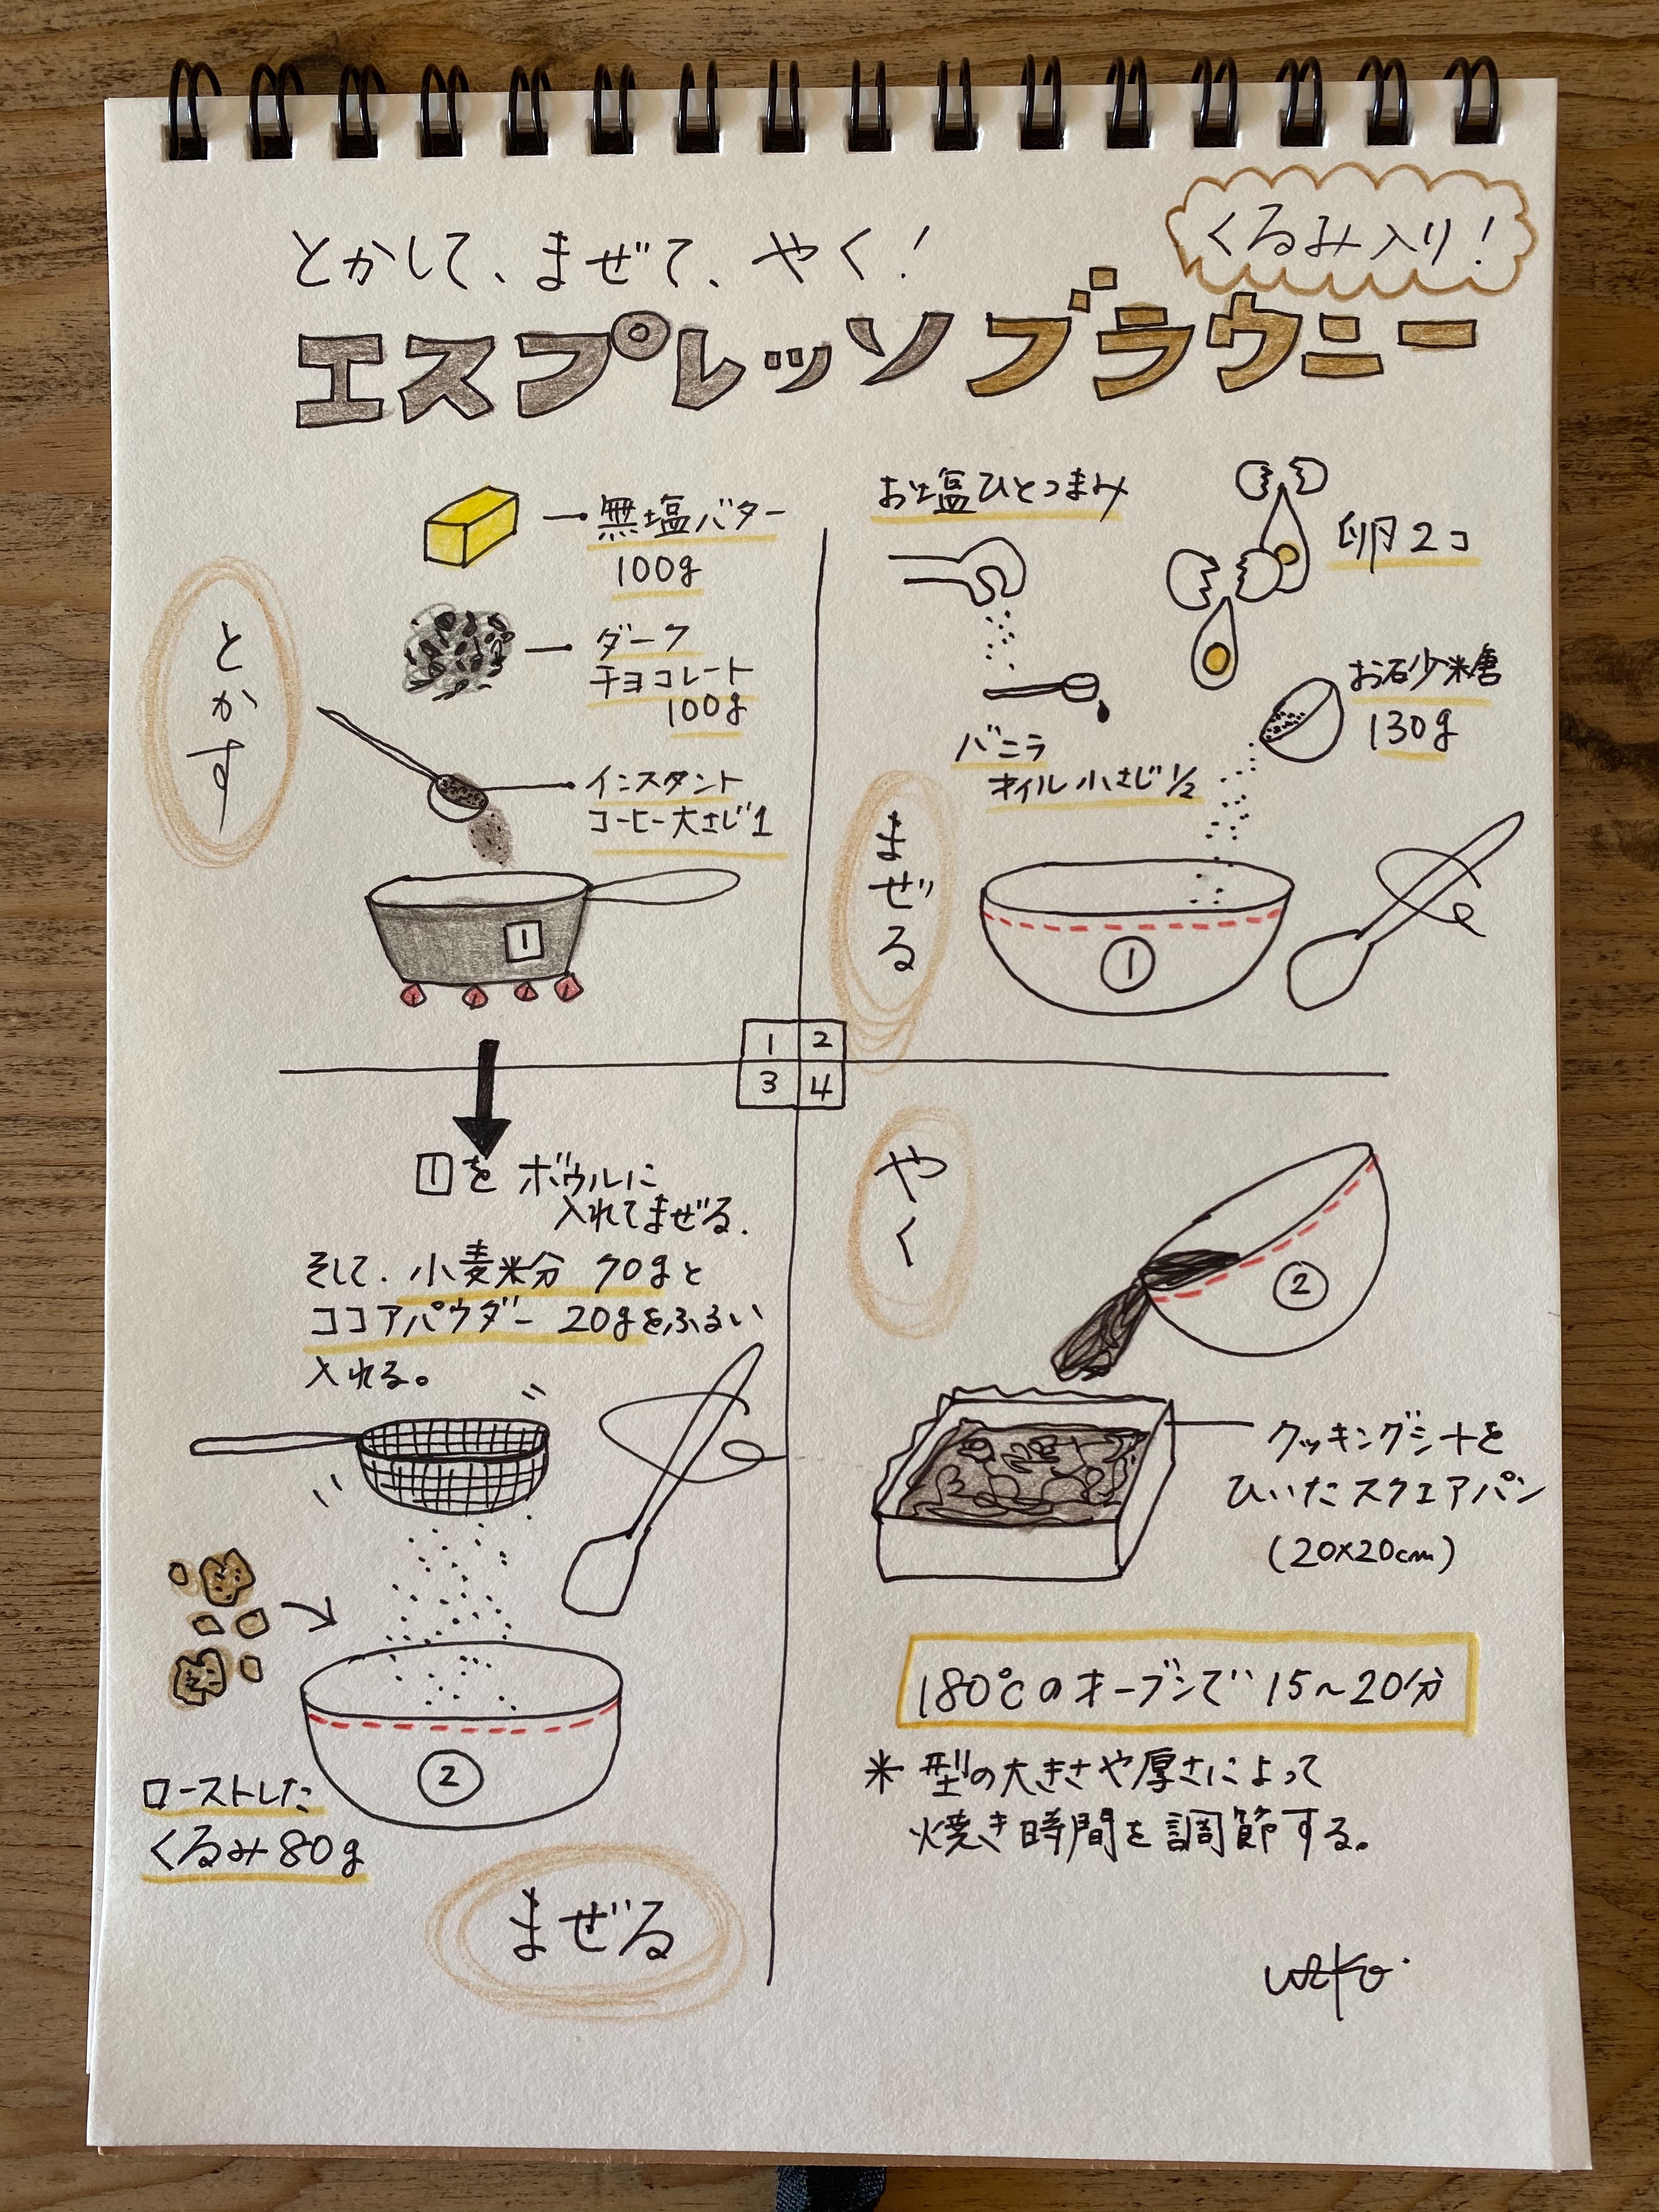 とかして、まぜて、やく!
くるみ入り!
エスプレッソブラウニー
とかす
無塩バター
100g
ダーク
チョコレート
100g
インスタント
コーヒー大さじ1
1
お塩ひとつまみ
卵2コ
お砂糖
130g
バニラ
オイル小さじ1/2
まぜる
①
1 2
3 4
1をボウルに
入れてまぜる.
そして、小麦粉 70gと
ココアパウダー 20gをふるい
入れる。
ローストした
くるみ80g
②
まぜる
やく
②
クッキングシートを
ひいたスクエアパン
(20×20cm)
180℃のオーブンで15~20分
* 型の大きさや厚さによって
焼き時間を調節する。